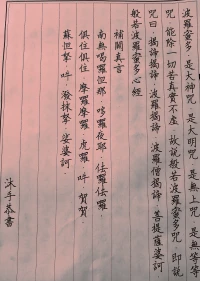 波羅蜜多 是大神咒 是大明咒 是無上咒 是無等等
咒 能除一切苦真實不虛 故說般若波羅蜜多咒 即說
咒曰 揭諦揭諦 波羅揭諦 波羅僧揭諦 菩提薩婆訶
般若波羅蜜多心經
補闕真言
南無喝囉怛那 哆羅夜耶 佉羅佉羅
俱住俱住 摩羅摩羅 虎羅 吽 賀賀
蘇怛拏 吽 潑抹拏 娑婆訶
沐手恭書